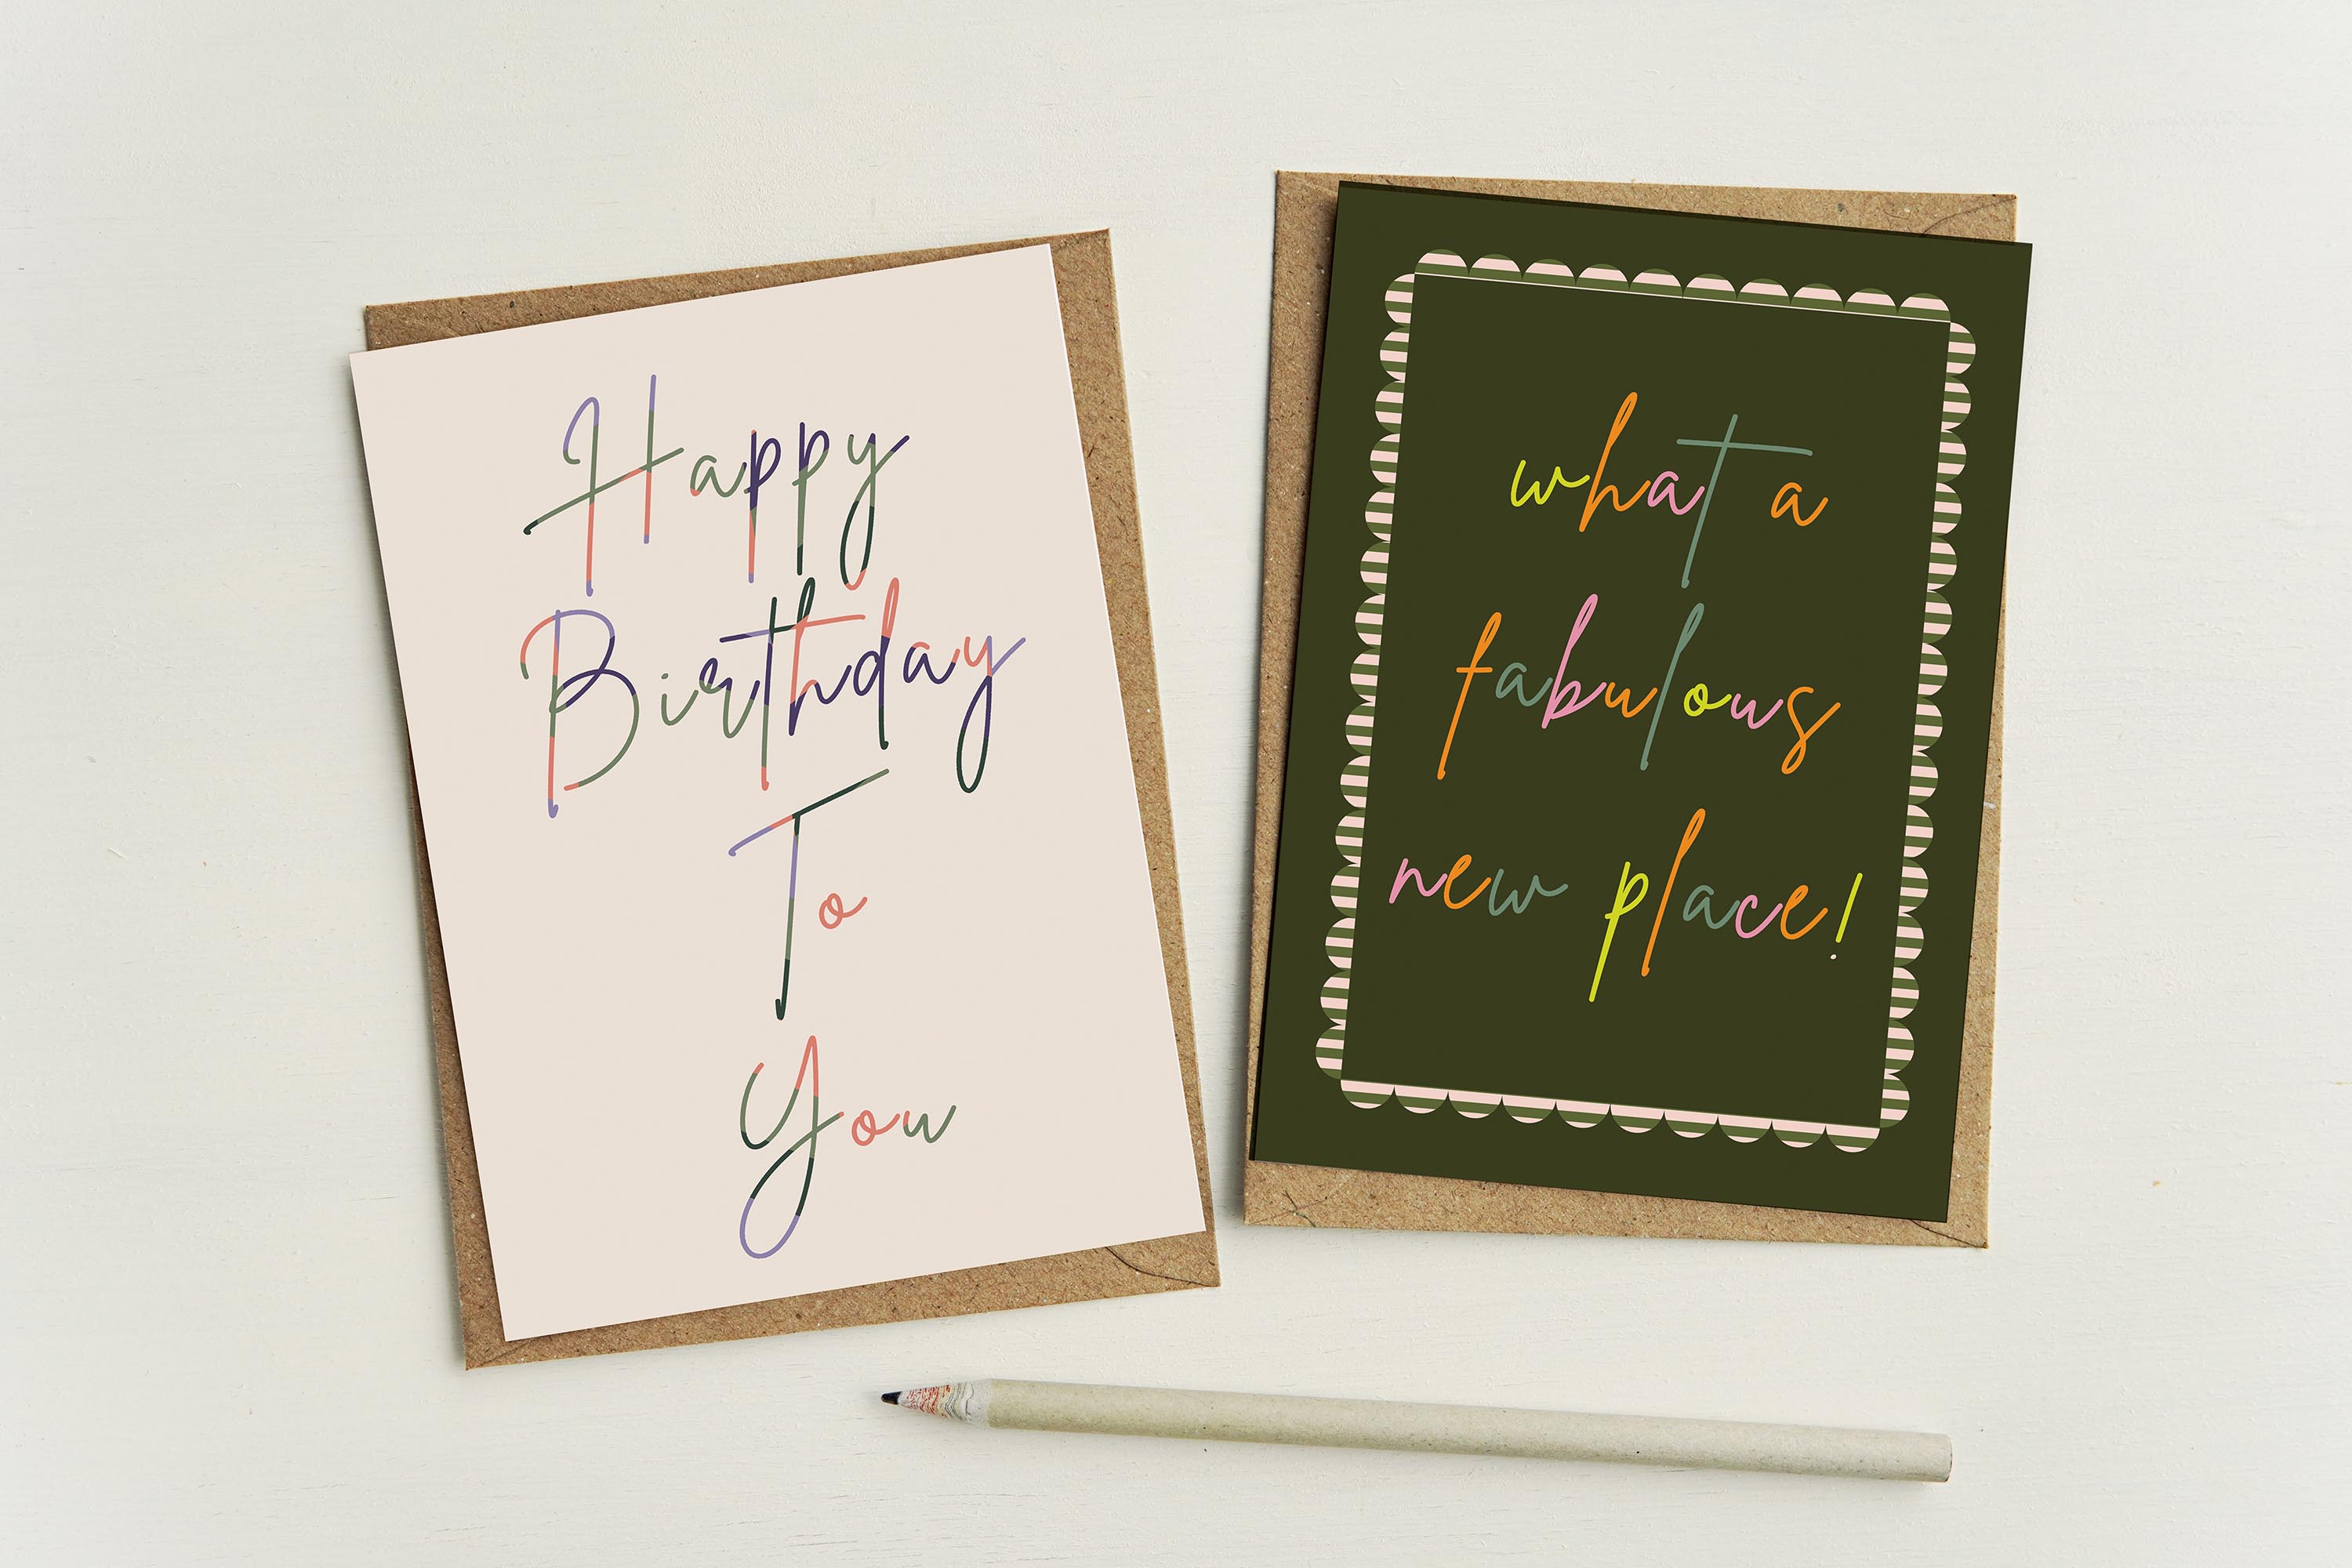 Happy
Birthday
To
You
what a
fabulous
new place!